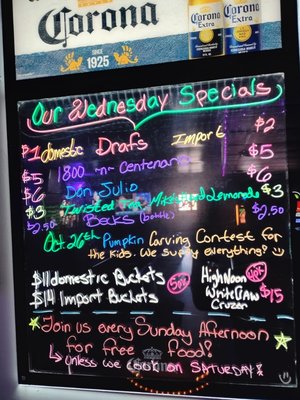 Corona
SINCE
1925
Corona
Extra
Corona
Extra
Our Wednesday Specials
$1 domestic Drafs Import $2
$5 1800 -n- Centenario $5
$6 Don Julio $6
$3 Twisted Tea, Mikes Hard Lemonade $3
$2.50 Becks (bottle) $2.50
Oct 26th Pumpkin Carving Contest for
the kids. We supply everything?
$11 domestic Buckets 5oz High Noon
$14 Import Buckets White Claw $15
Cruzer
Join us every Sunday Afternoon
for free food?
Unless we cook on SATURDAY